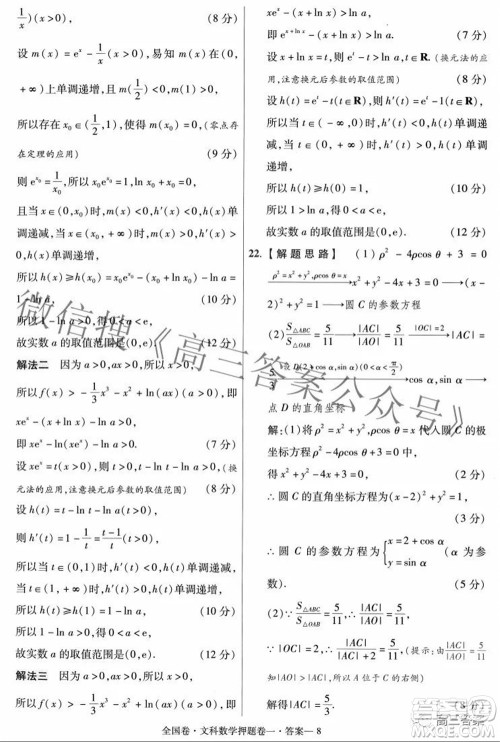 1/x)(x>0), (8分)
设 m(x)=eˣ-1/x(x>0),易知 m(x)在(0,
+∞)上单调递增,且 m(1/2)<0,m(1)>0,
所以存在 x₀∈(1/2,1),使得 m(x₀)=0,(零点存
在定理的应用) (9分)
则 e^{x₀}=1/x₀,故 x₀e^{x₀}=1,ln x₀+x₀=0,
且当 x∈(0,x₀)时,m(x)<0,h'(x)<0,h(x)单
调递减,当 x∈(x₀,+∞)时,m(x)>0,h'(x)>
0,h(x)单调递增.
所以 h(x)≥h(x₀)=x₀e^{x₀}-(x₀+ln x₀)-ln a=
1-ln a. (10分)
所以 1-ln a>0,得 0<a<e,
故实数 a 的取值范围为(0,e). (12分)
解法二 因为 a>0,ax>0,所以 x>0,
所以 f(x)>-1/3x³-x²-ln(ax)(a>0),即
xeˣ-x-ln(ax)>0,
即 xeˣ-ln(xeˣ)-ln a>0. (7分)
设 xeˣ=t(x>0),则 t>0,t-ln t-ln a>0,(换
元法的应用,注意换元后参数的取值范围) (8分)
设 h(t)=t-ln t-ln a(t>0),
则 h'(t)=1-1/t=(t-1)/t(t>0),
所以当 t∈(0,1)时,h'(t)<0,h(t)单调递减,
当 t∈(1,+∞)时,h'(t)>0,h(t)单调递增,
所以 h(t)≥h(1)=1-ln a, (10分)
所以 1-ln a>0,得 0<a<e,
故实数 a 的取值范围为(0,e). (12分)
解法三 因为 a>0,ax>0,所以 x>0,
所以 f(x)>-1/3x³-x²-ln(ax)(a>0),即
xeˣ-(x+ln x)>ln a,
即 e^{x+ln x}-(x+ln x)>ln a. (7分)
设 x+ln x=t,则 eᵗ-t>ln a,t∈R.(换元法的应
用,注意换元后参数的取值范围) (8分)
设 h(t)=eᵗ-t(t∈R),则 h'(t)=eᵗ-1(t∈R),
所以当 t∈(-∞,0)时,h'(t)<0,h(t)单调递
减,当 t∈(0,+∞)时,h'(t)>0,h(t)单调
递增,
所以 h(t)≥h(0)=1, (10分)
所以 1>ln a,得 0<a<e,
故实数 a 的取值范围为(0,e). (12分)
22.【解题思路】 (1)ρ²-4ρcos θ+3=0
ρ²=x²+y²,ρcos θ=x → x²+y²-4x+3=0 → (x-
2)²+y²=1 → 圆 C 的参数方程
(2) S△ABC/S△OAB=5/11 → |AC|/|AO|=5/11 |OC|=2 → |AC|=
5/3 设 D(2,α)(0<α<π/2) → cos α,sin α →
点 D 的直角坐标
解:(1)将 ρ²=x²+y²,ρcos θ=x 代入圆 C 的极
坐标方程 ρ²-4ρcos θ+3=0 中,
得 x²+y²-4x+3=0, (2分)
∴圆 C 的直角坐标方程为(x-2)²+y²=1,
(3分)
∴圆 C 的参数方程为{x=2+cos α y=sin α (α 为参
数). (5分)
(2)∵ S△ABC/S△OAB=5/11,∴ |AC|/|AO|=5/11.
∵|OC|=2,∴ |AC|/(|AC|+2)=5/11,(提示:由 |AC|/|AO|=5/11
知|AO|>|AC|,故|AO|=|AC|+|OC|)
解得|AC|=5/3. (8分)
全国卷·文科数学押题卷一·答案—8
微信搜《高三答案公众号》
高三答案